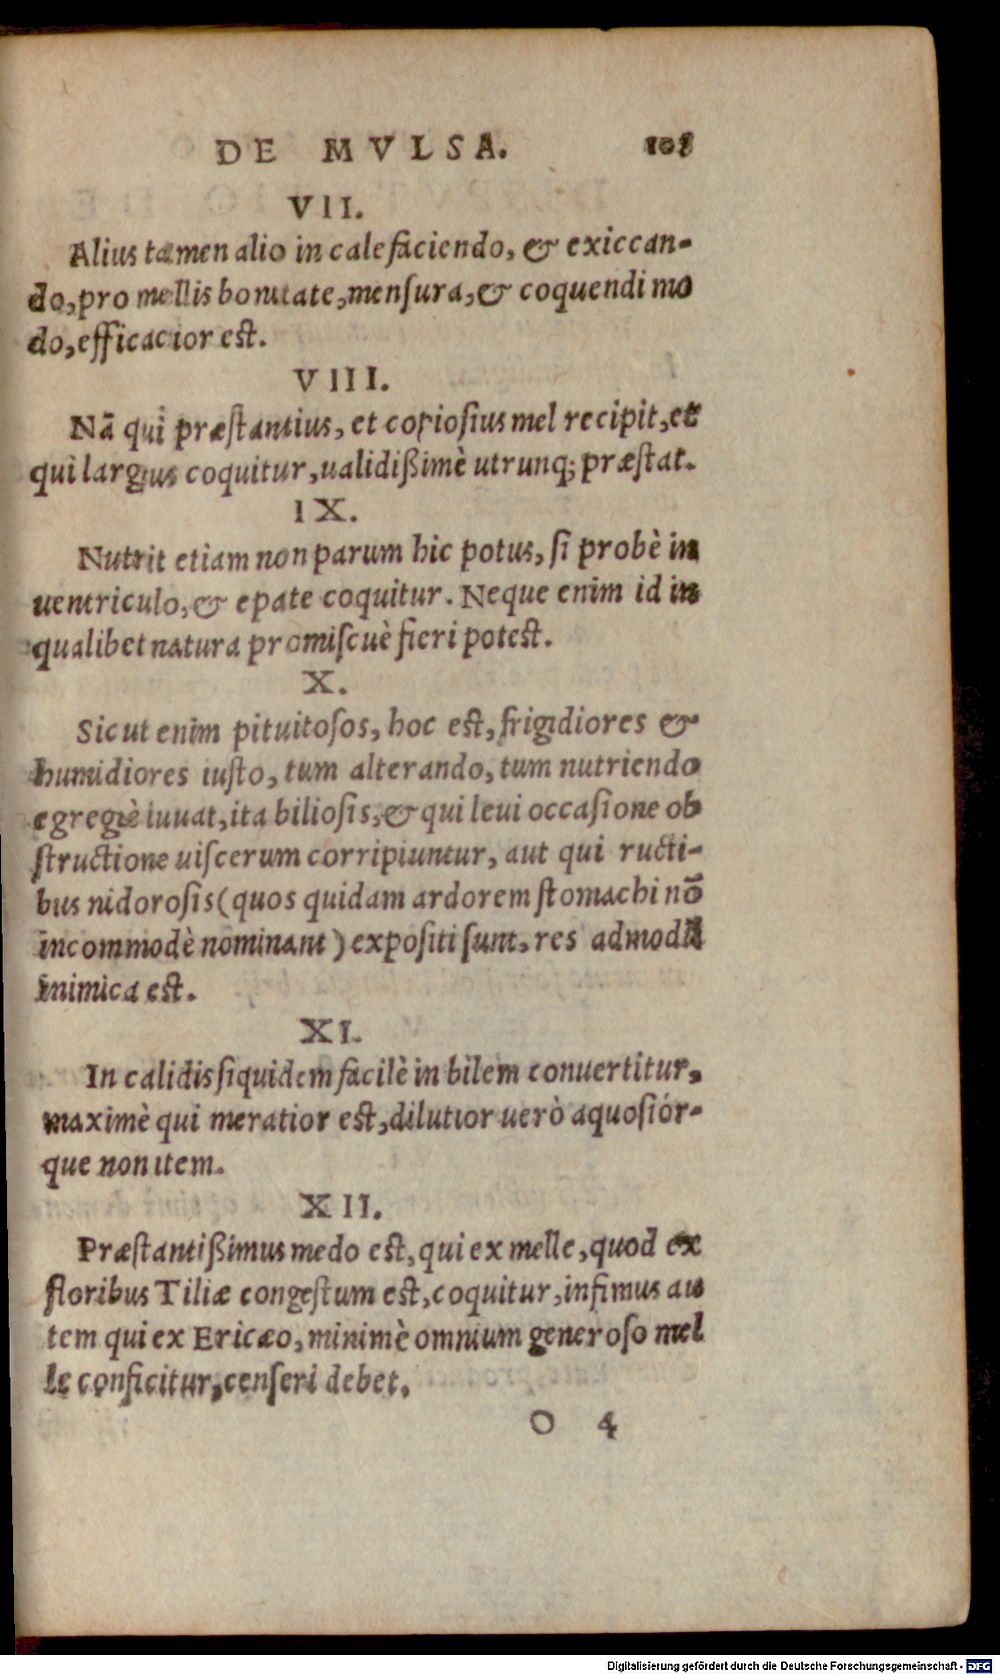 DE MVLSA. 108
VII.
Alius tamen alio in calefaciendo, & exiccan-
do, pro mellis bonitate, mensura, & coquendi mo
do, efficacior est.
VIII.
Nā qui præstantius, et copiosius mel recipit, et
qui largius coquitur, ualidißimè utrunq; præstat.
IX.
Nutrit etiam non parum hic potus, si probè in
uentriculo, & epate coquitur. Neque enim id in
qualibet natura promiscuè fieri potest.
X.
Sicut enim pituitosos, hoc est, frigidiores &
humidiores iusto, tum alterando, tum nutriendo
egregiè iuuat, ita biliosis, & qui leui occasione ob
structione uiscerum corripiuntur, aut qui ructi-
bus nidorosis (quos quidam ardorem stomachi nō
incommodè nominant) expositi sunt, res admodū
inimica est.
XI.
In calidis siquidem facilè in bilem conuertitur,
maximè qui meratior est, dilutior uerò aquosiór-
que non item.
XII.
Præstantißimus medo est, qui ex melle, quod ex
floribus Tiliæ congestum est, coquitur, infimus au
tem qui ex Ericæo, minimè omnium generoso mel
le conficitur, censeri debet.
O 4
Digitalisierung gefördert durch die Deutsche Forschungsgemeinschaft - DFG